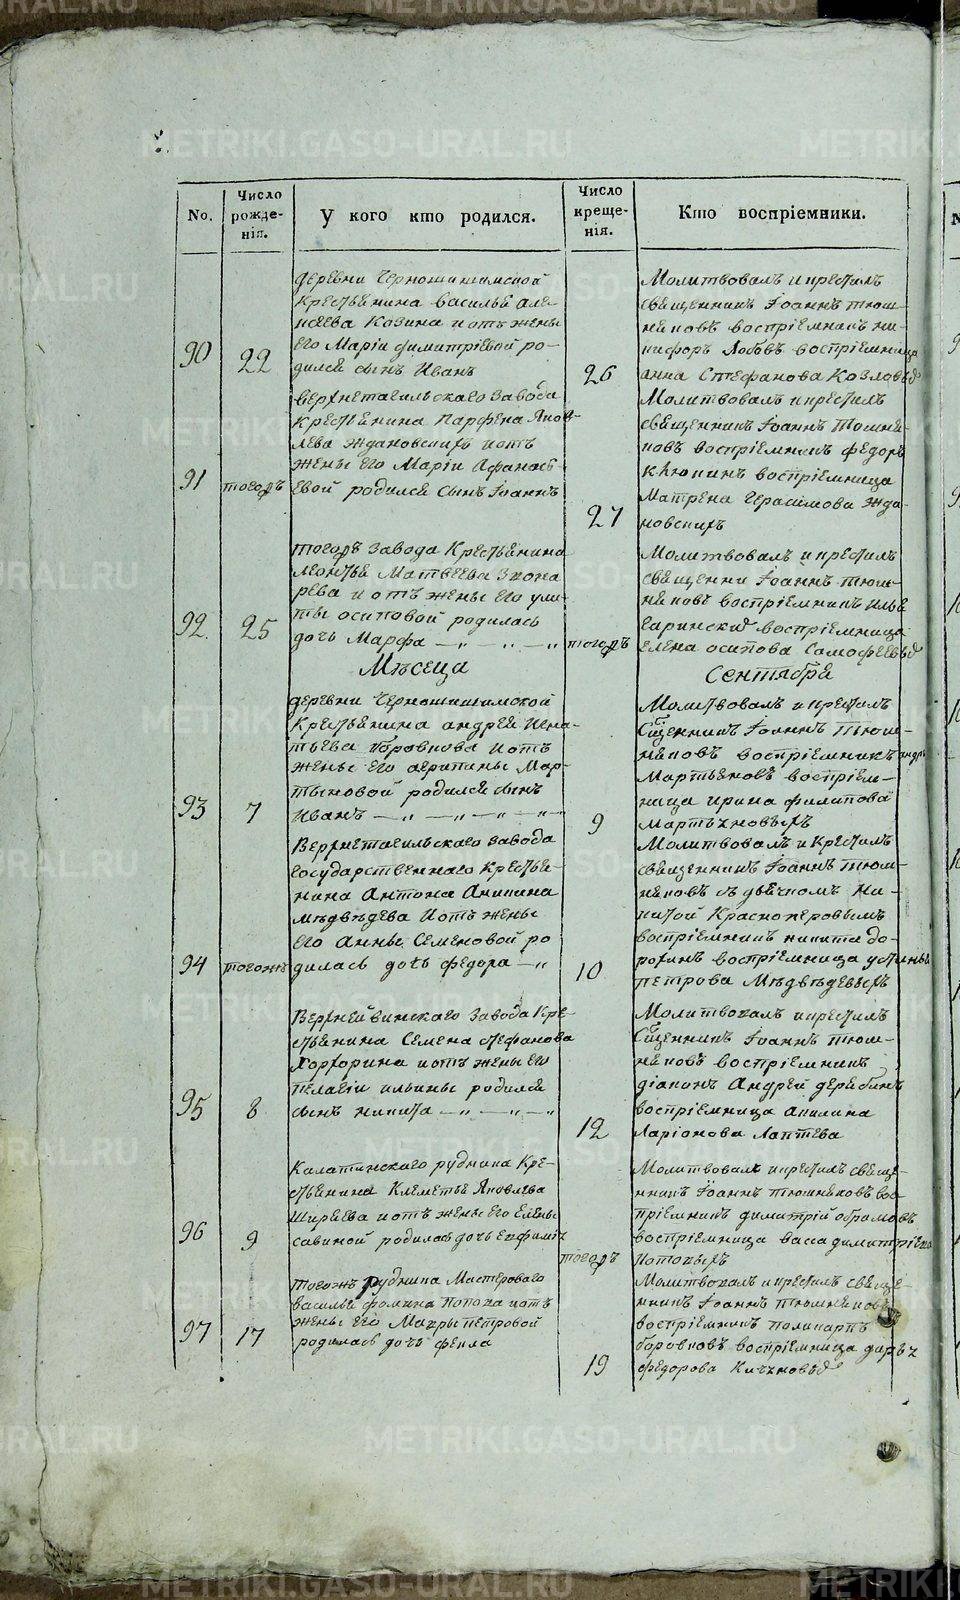 METRIKI.GASO-URAL.RU
No.
Число рожде-нія.
У кого кто родился.
Число креще-нія.
Кто воспріемники.
деревни Черношишимской
Крестьянина василья але-
ксѣева Козина и отъ жены
его Маріи димитріевой ро-
90 22 дился сынъ Иванъ
26
Молитвовалъ и крестилъ
священникъ Іоаннъ тюш-
няковъ воспріемникъ ни-
кифоръ Лобовъ воспріемница
анна Стефанова Козловыхъ
верхнетагильскаго Завода
Крестьянина Парфена Яков-
лева Ждановскихъ и отъ
жены его Маріи Афанась-
91 тогожъ евой родился сынъ Іоаннъ
27
Молитвовалъ и крестилъ
священникъ Іоаннъ Тюшня-
ковъ воспріемникъ федоръ
воспріемница
Матрена Герасимова Жда-
новскихъ
тогожъ Завода Крестьянина
леонтья Матвеева
и отъ жены его ули-
ты осиповой родилась
92. 25 дочь Марфа
тогожъ
Молитвовалъ и крестилъ
священни Іоаннъ тюш-
няковъ воспріемникъ илья
воспріемница
елена осипова
Мѣсеца Сентября
деревни Черношишимской
Крестьянина андрея игна-
тьева и отъ
жены его агрипины Мар-
тыновой родился сынъ
93 7 Иванъ
9
Молитвовалъ и крестилъ
Сщенникъ Іоаннъ Тюш-
няковъ воспріемникъ
Мартьяновъ воспріем-
ница ирина филипова
Мартьяновыхъ
Верхнетагильскаго завода
государственнаго Крестья-
нина Антона Аникина
Мѣдвѣдева и отъ жены
его Анны Семеновой ро
94 тогожъ дилась дочь федора
10
Молитвовалъ и Крестилъ
священникъ Іоаннъ Тюш-
няковъ съ дьячкомъ Ни-
китой Красноперовымъ
воспріемникъ никита до-
рохинъ воспріемница устинья
петрова Мѣдвѣдевыхъ
Верхнейвинскаго завода Кре-
стьянина Семена стефанова
и отъ жены его
пелагіи ильины родился
95 8 сынъ никита
12
Молитвовалъ и крестилъ
Сщенникъ Іоаннъ тюш-
няковъ воспріемникъ
діаконъ Андрей дерябинъ
воспріемница акилина
Ларіонова Лаптева
Калатинскаго рудника Кре-
стьянина Клементья Яковлева
Ширяева и отъ жены его Елены
96 9 савиной родилась дочь Евфимія
тогожъ
Молитвовалъ и крестилъ свяще-
нникъ Іоаннъ тюшняковъ вос-
пріемникъ димитрій абрамовъ
воспріемница васса димитріева
тогожъ рудника Мастероваго
василья фомина Попова и отъ
жены его Мавры петровой
97 17 родилась дочь фекла
19
Молитвовалъ и крестилъ свяще-
нникъ Іоаннъ тюшняковъ
воспріемникъ поликарпъ
боровковъ воспріемница дарья
федорова